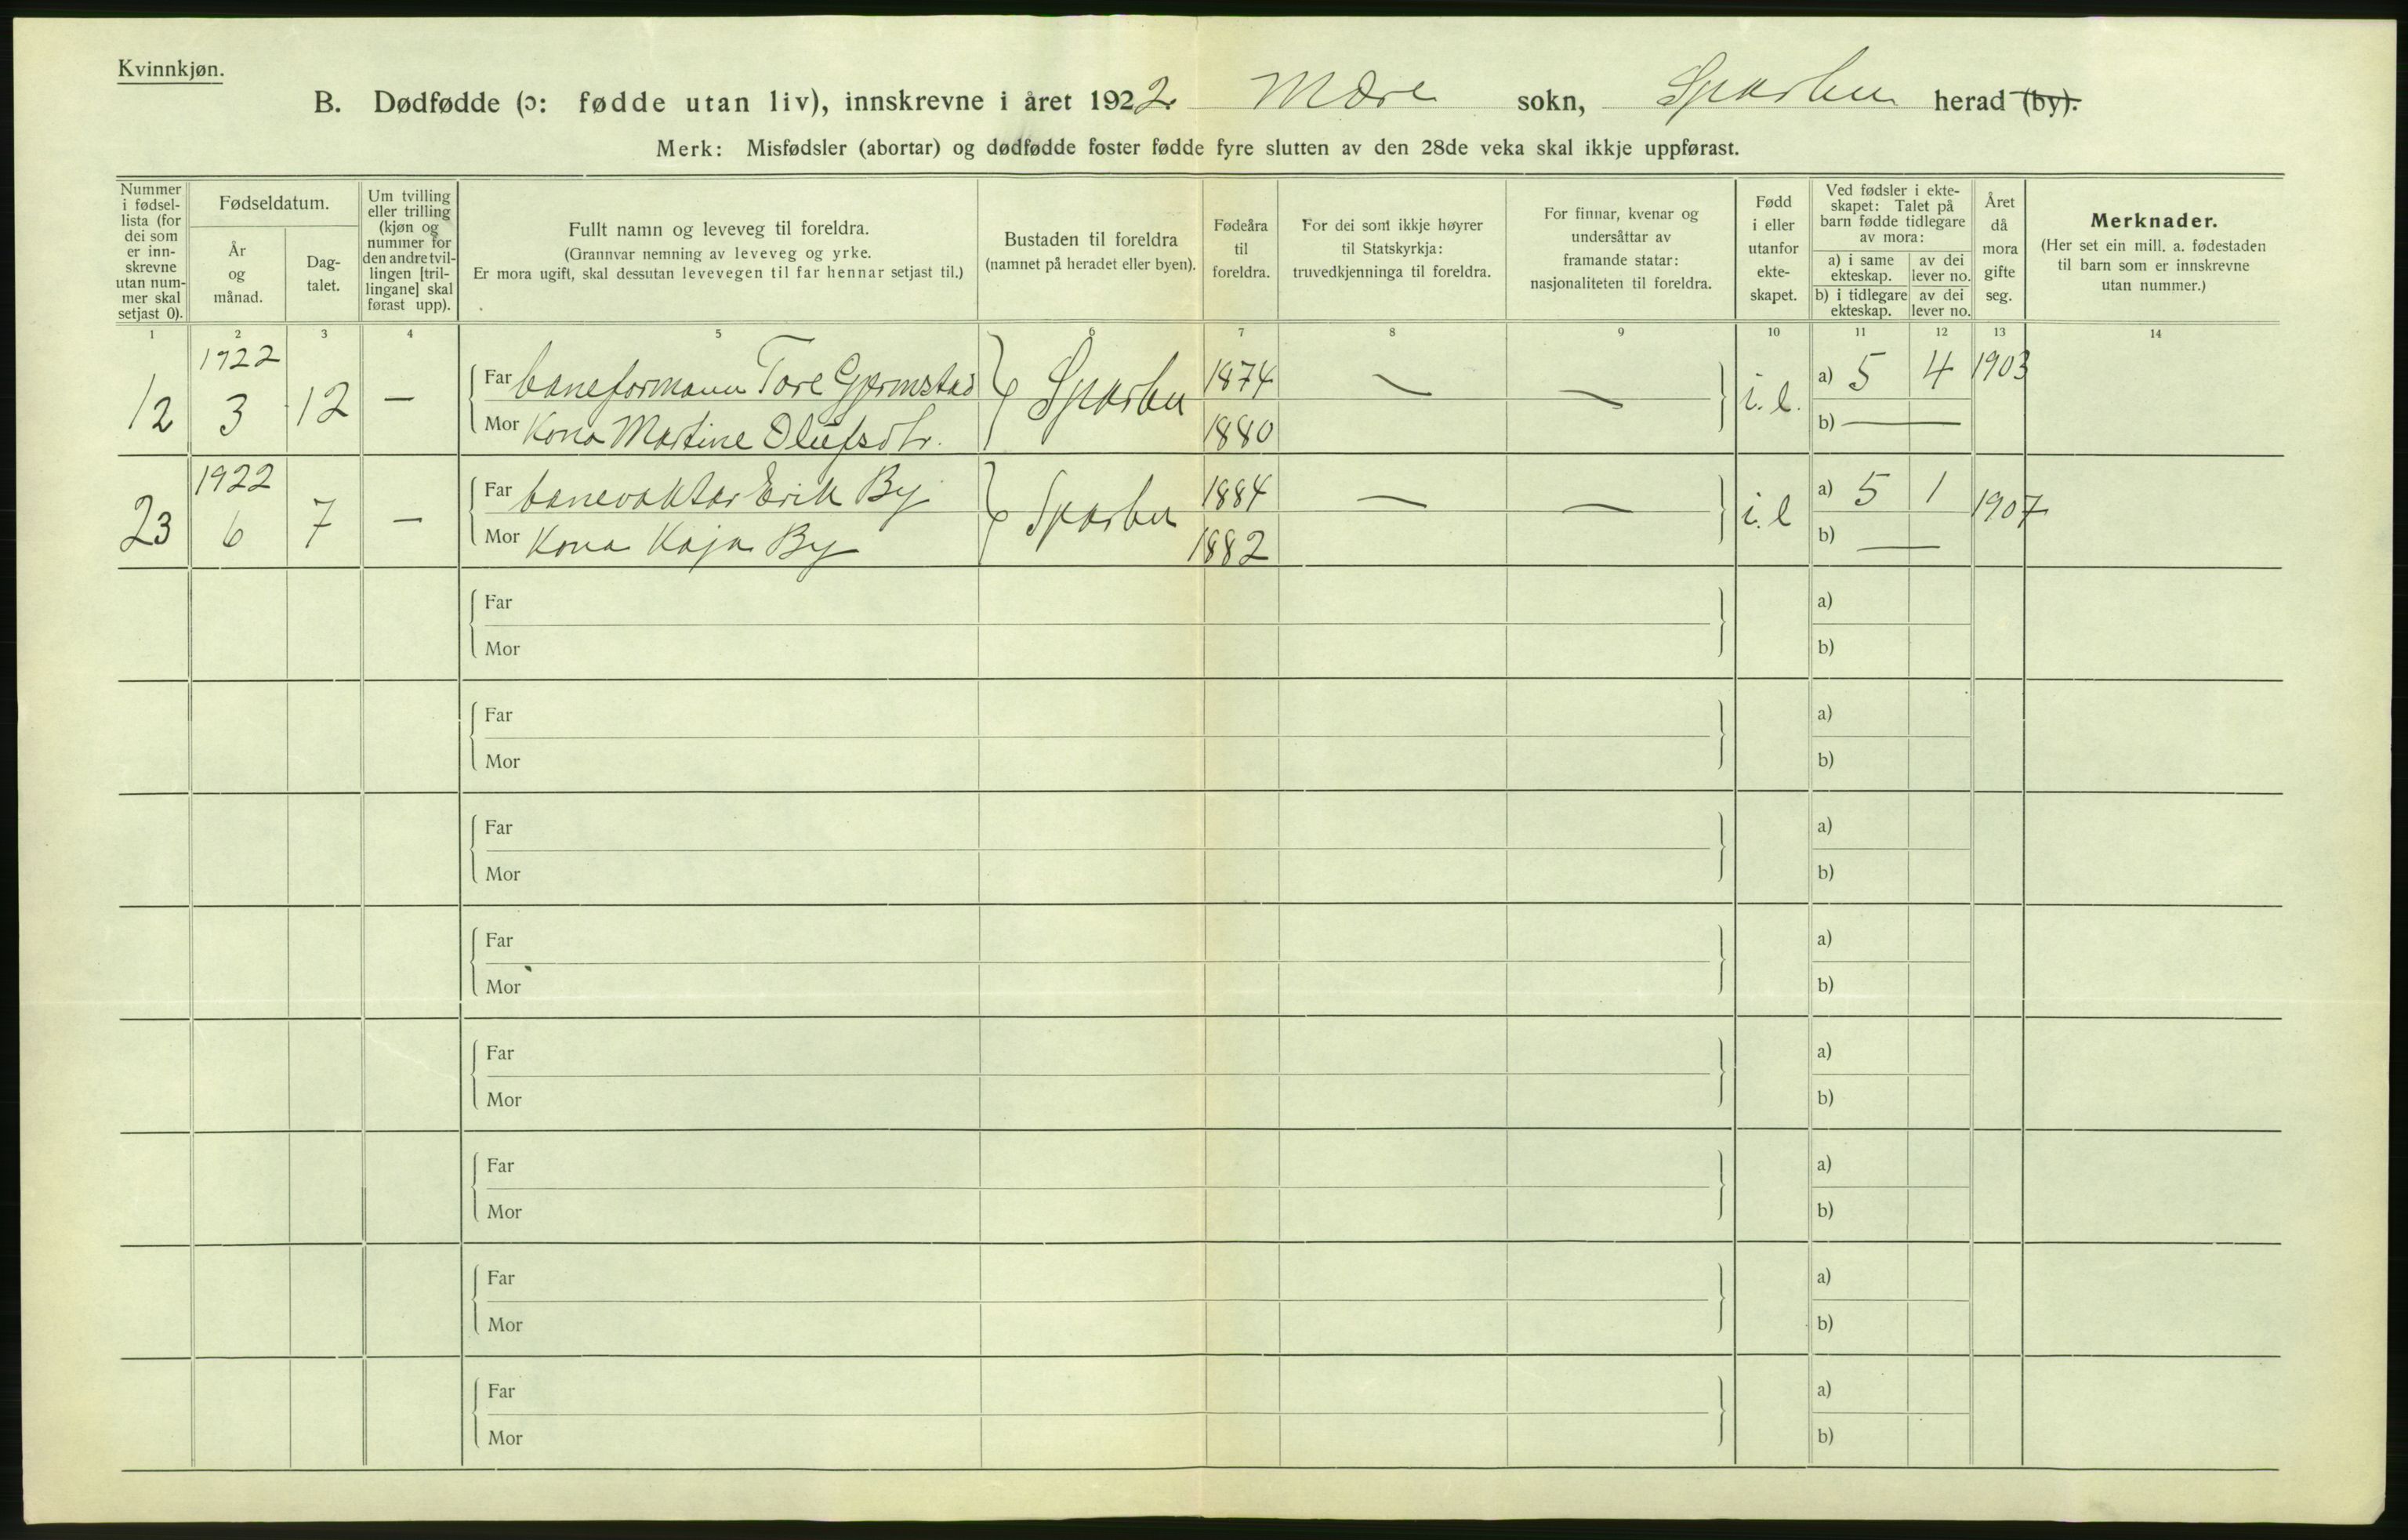 Kvinnkjøn.
B. Dødfødde (ɔ: fødde utan liv), innskrevne i året 1922 Mære sokn, Sparbu herad (by).
Merk: Misfødsler (abortar) og dødfødde foster fødde fyre slutten av den 28de veka skal ikkje uppførast.
Nummer
i fødsel-
lista (for
dei som
er inn-
skrevne
utan num-
mer skal
setjast 0).
Fødseldatum.
År
og
månad.
Dag-
talet.
Um tvilling
eller trilling
(kjøn og
nummer for
den andre tvil-
lingen [tril-
lingane] skal
førast upp).
Fullt namn og leveveg til foreldra.
(Grannvar nemning av leveveg og yrke.
Er mora ugift, skal dessutan levevegen til far hennar setjast til.)
Bustaden til foreldra
(namnet på heradet eller byen).
Fødeåra
til
foreldra.
For dei som ikkje høyrer
til Statskyrkja:
truvedkjenninga til foreldra.
For finnar, kvenar og
undersåttar av
framande statar:
nasjonaliteten til foreldra.
Fødd
i eller
utanfor
ekte-
skapet.
Ved fødsler i ekte-
skapet: Talet på
barn fødde tidlegare
av mora:
a) i same
ekteskap.
av dei
lever no.
b) i tidlegare
ekteskap.
av dei
lever no.
Året
då
mora
gifte
seg.
Merknader.
(Her set ein mill. a. fødestaden
til barn som er innskrevne
utan nummer.)
1 2 3 4 5 6 7 8 9 10 11 12 13 14
1922
12 3 12 — Far baneformann Tore Gjermstad Sparbu 1874 — — i.e. a) 5 4 1903
Mor Kona Martine Olufsdtr. 1880 b) —
1922
23 6 7 — Far banevaktar Erik By Sparbu 1884 — — i.e a) 5 1 1907
Mor Kona Kaja By 1882 b) —
Far a)
Mor b)
Far a)
Mor b)
Far a)
Mor b)
Far a)
Mor b)
Far a)
Mor b)
Far a)
Mor b)
Far a)
Mor b)
Far a)
Mor b)